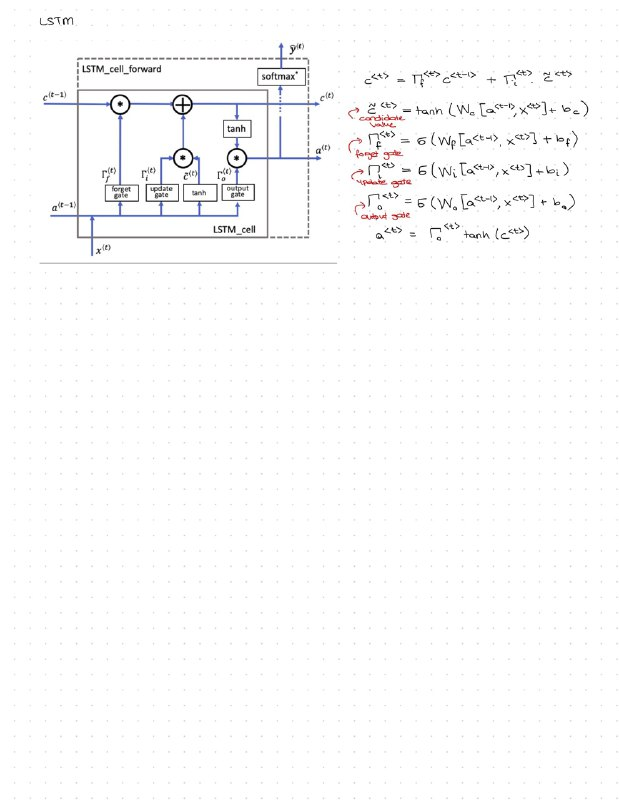 LSTM
ŷ⁽ᵗ⁾
LSTM_cell_forward
softmax*
c⁽ᵗ⁻¹⁾
c⁽ᵗ⁾
tanh
a⁽ᵗ⁾
Γ_f⁽ᵗ⁾ Γ_i⁽ᵗ⁾ c̃⁽ᵗ⁾ Γ_o⁽ᵗ⁾
forget gate
update gate
tanh
output gate
a⁽ᵗ⁻¹⁾
LSTM_cell
x⁽ᵗ⁾
c<t> = Γ_f<t> c<t-1> + Γ_i<t> · c̃<t>
c̃<t> = tanh (W_c [a<t-1>, x<t>] + b_c)
candidate value
Γ_f<t> = σ (W_f [a<t-1>, x<t>] + b_f)
forget gate
Γ_i<t> = σ (W_i [a<t-1>, x<t>] + b_i)
update gate
Γ_o<t> = σ (W_o [a<t-1>, x<t>] + b_o)
output gate
a<t> = Γ_o<t> tanh (c<t>)